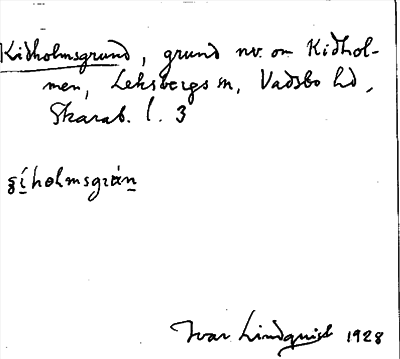 Kidholmsgrund, grund nv. om Kidhol-
men, Leksbergs sn, Vadsbo hd,
Skarab. l. 3
Ivar Lindquist 1928